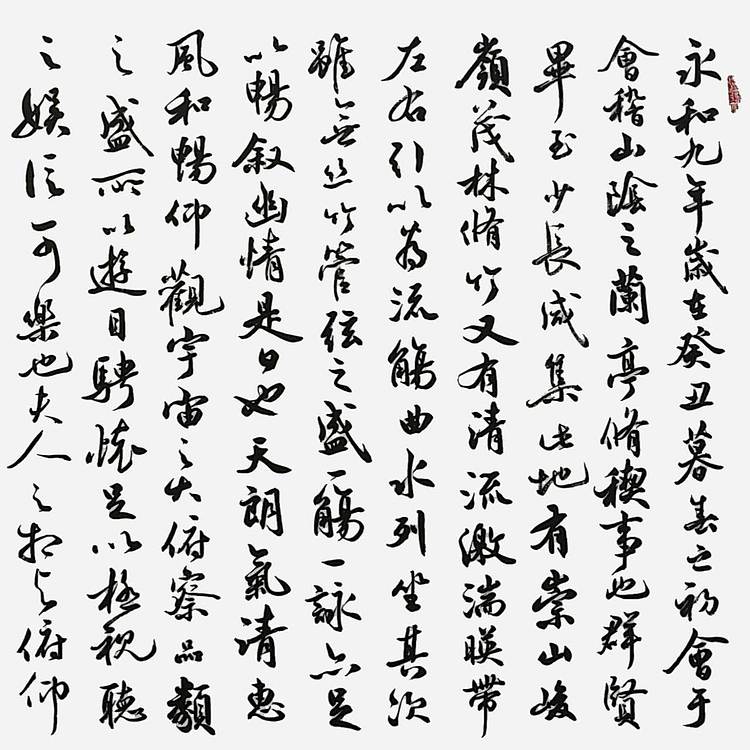 永和九年歲在癸丑暮春之初會于
會稽山陰之蘭亭脩禊事也群賢
畢至少長咸集此地有崇山峻
嶺茂林脩竹又有清流激湍暎帶
左右引以為流觴曲水列坐其次
雖無絲竹管弦之盛一觴一詠亦足
以暢敘幽情是日也天朗氣清惠
風和暢仰觀宇宙之大俯察品類
之盛所以遊目騁懷足以極視聽
之娛信可樂也夫人之相與俯仰